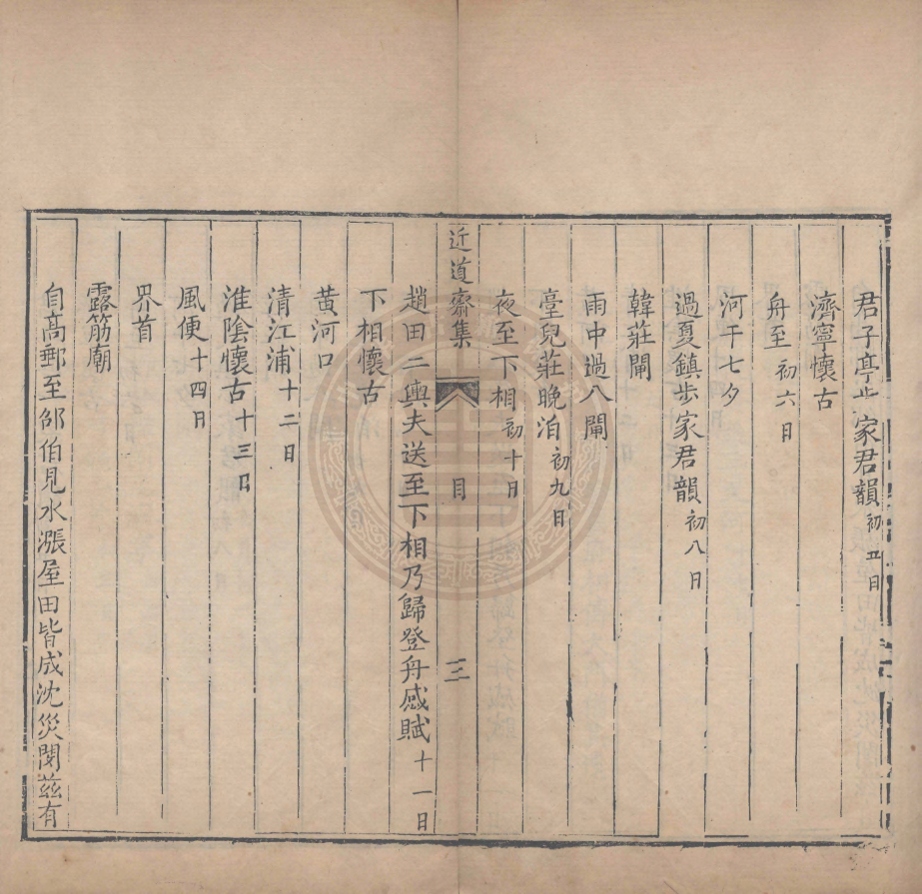 君子亭步家君韻初五日
濟寧懷古
舟至初六日
河干七夕
過夏鎮步家君韻初八日
韓莊閘
雨中過八閘
臺兒莊晚泊初九日
夜至下相初十日
近道齋集 目 三
趙田二輿夫送至下相乃歸登舟感賦十一日
下相懷古
黃河口
清江浦十二日
淮陰懷古十三日
風便十四日
界首
露筋廟
自高郵至邵伯見水漲屋田皆成沈災閔茲有